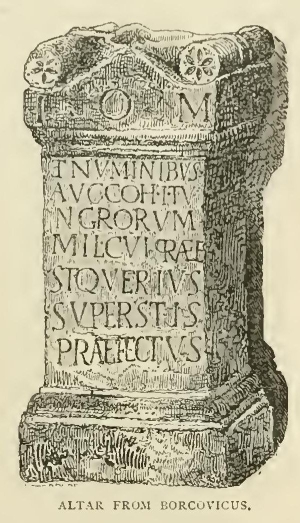 I O M
ET NUMINIBUS
AUG COH I TU
NGRORUM
MIL CUI PRAE
EST Q VERIUS
SUPERSTIS
PRAEFECTUS
ALTAR FROM BORCOVICUS.